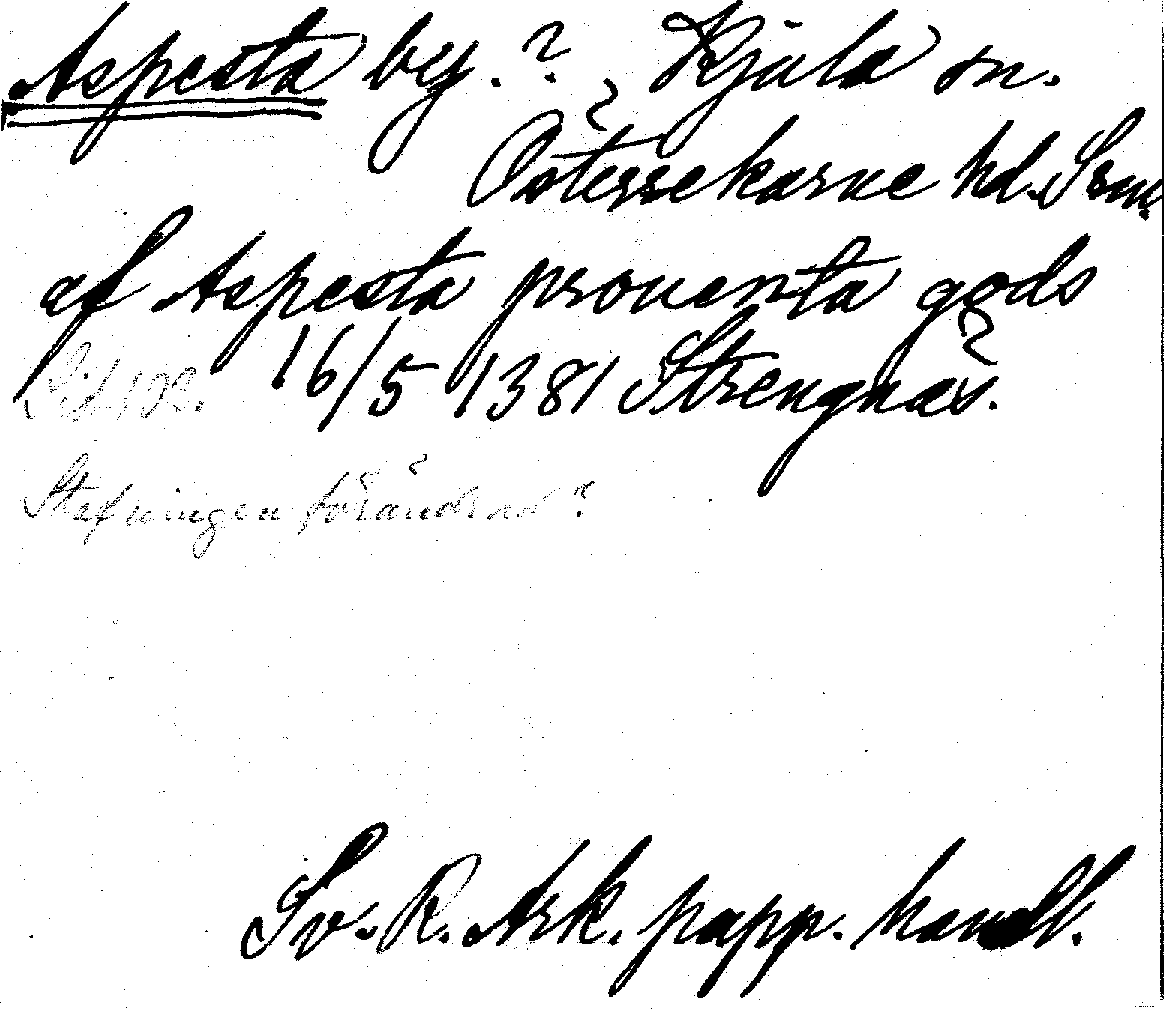 Aspesta by.? Kjula sn.
Österrekarne hd. Srm.
af Aspesta prouenta gods
Lif. 192. 16/5 1381 Strengnäs.
Stafningen förändrad?
Sv. R. Ark. papp. handl.